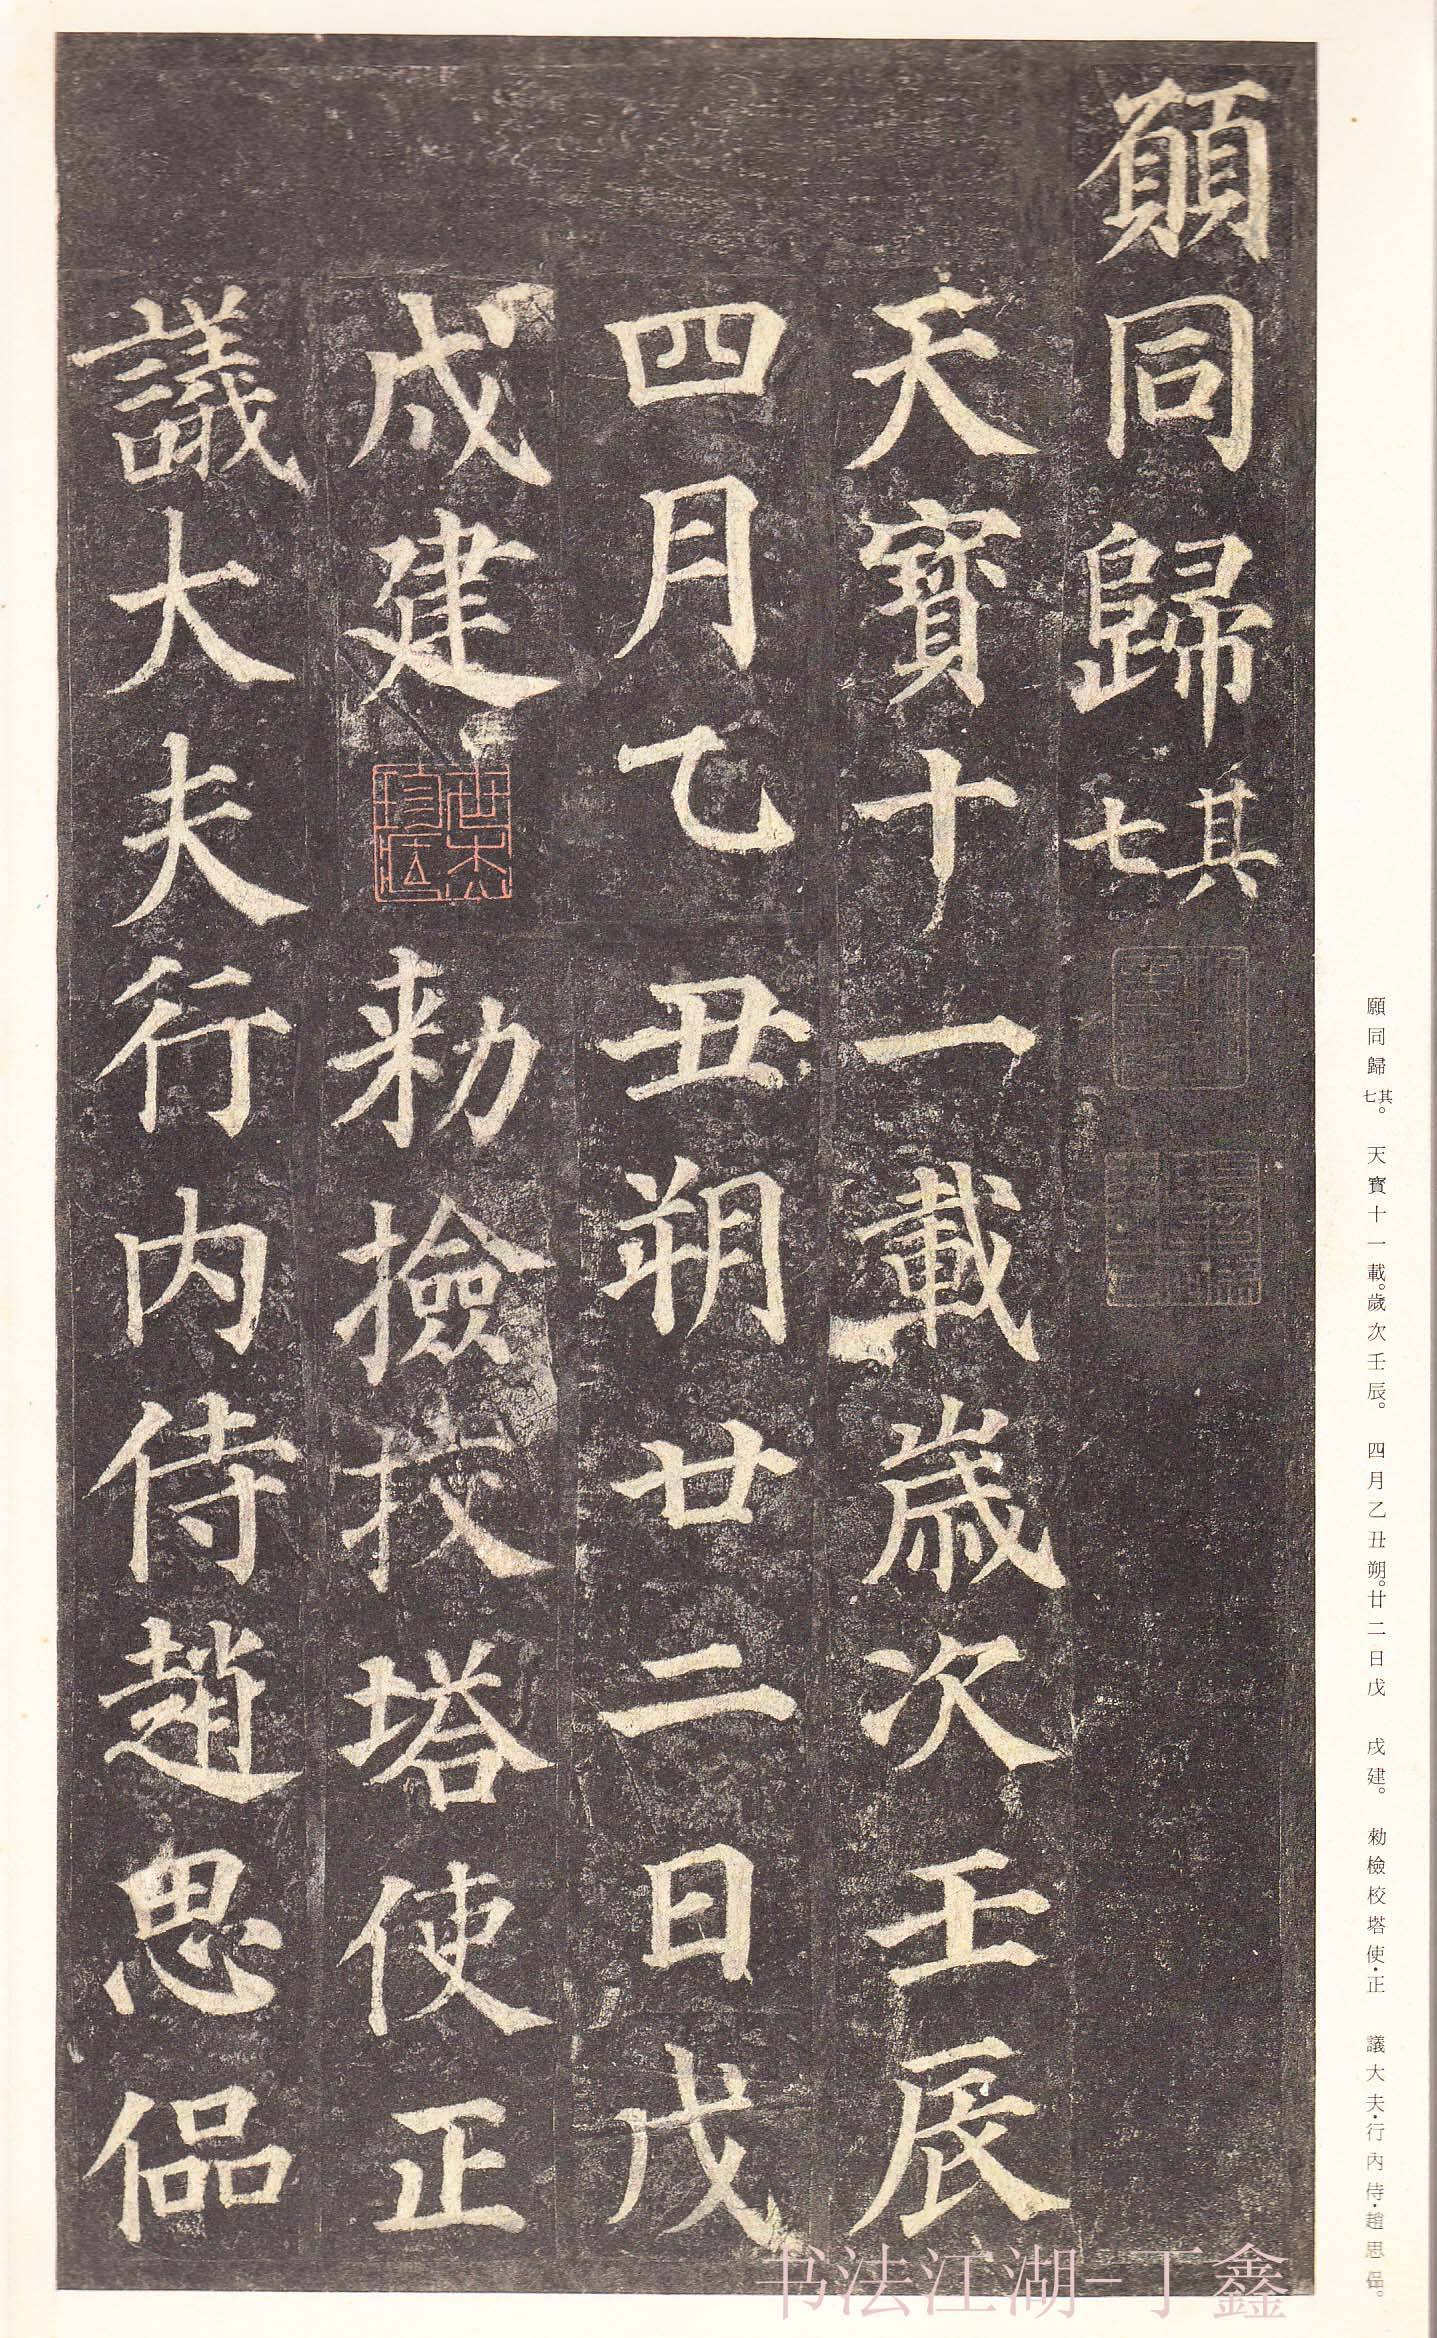 願同歸其七
天寶十一載歲次壬辰
四月乙丑朔廿二日戊
戌建勑檢校塔使正
議大夫行內侍趙思侶
願同歸其七。天寶十一載。歲次壬辰。四月乙丑朔。廿二日戊戌建。勑檢校塔使·正議大夫·行內侍·趙思侶。
书法江湖-丁鑫